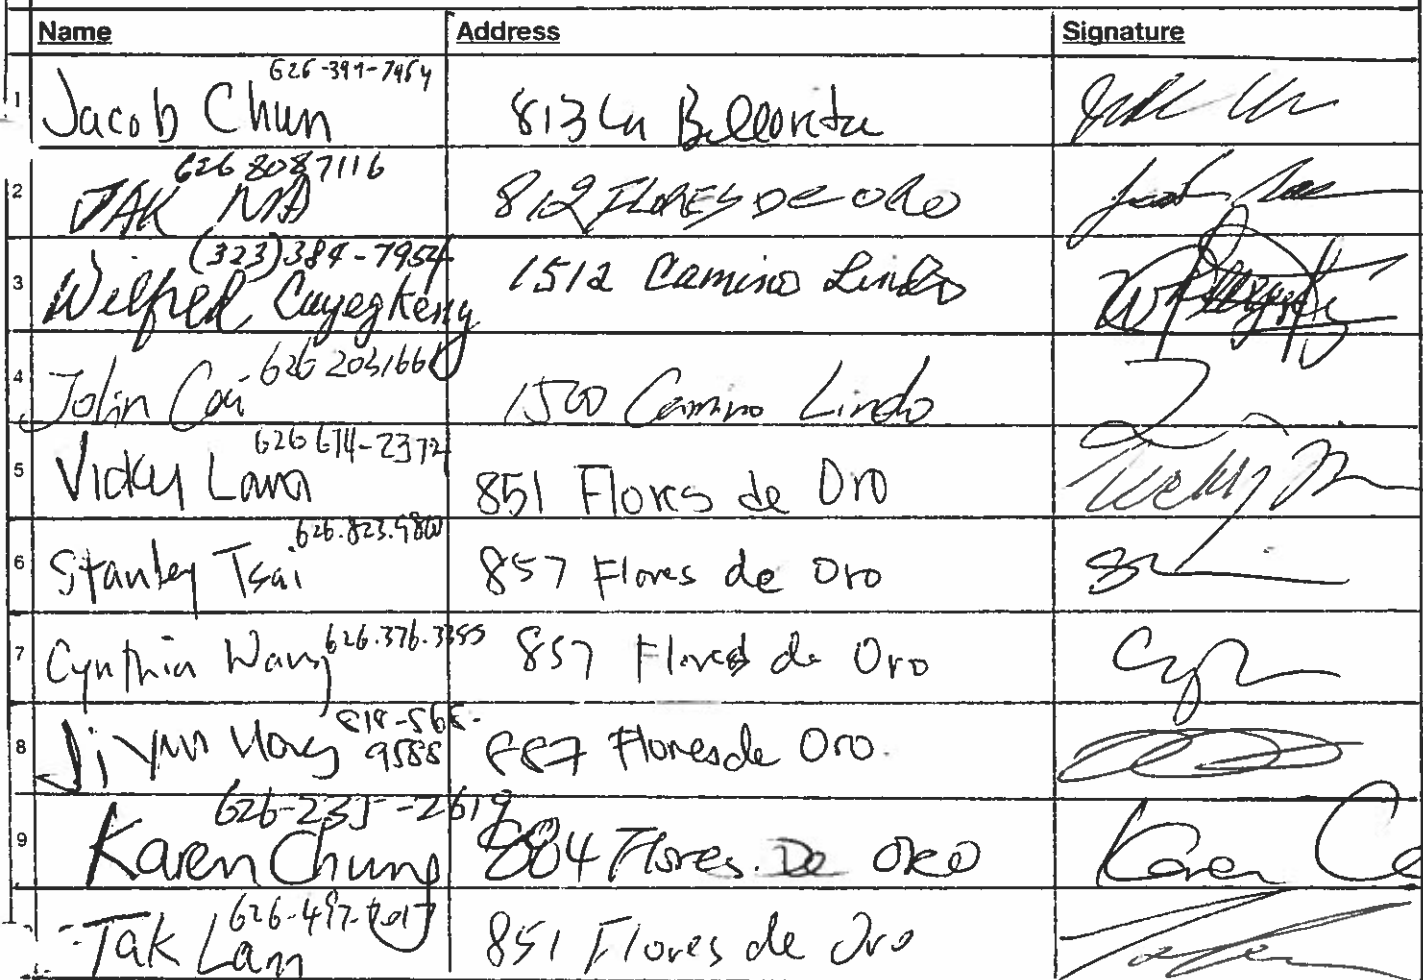 Name Address Signature
1 Jacob Chun 626-399-7964 813 La Bellorita
2 JAK MA 626 808 7116 812 FLORES DE ORO
3 Wilfred Cuyegkeng (323) 384-7954 1512 Camino Lindo
4 Jolin Cai 626 203 1661 1500 Camino Lindo
5 Vicky Lam 626 674-2372 851 Flores de Oro
6 Stanley Tsai 626.823.9860 857 Flores de Oro
7 Cynthia Wang 626.376.3355 857 Flores de Oro
8 Ji Yun 818-568-9588 887 Flores de Oro.
9 Karen Chung 626-235-2619 804 Flores. De ORO Karen
Tak Lam 626-497- 851 Flores de Oro